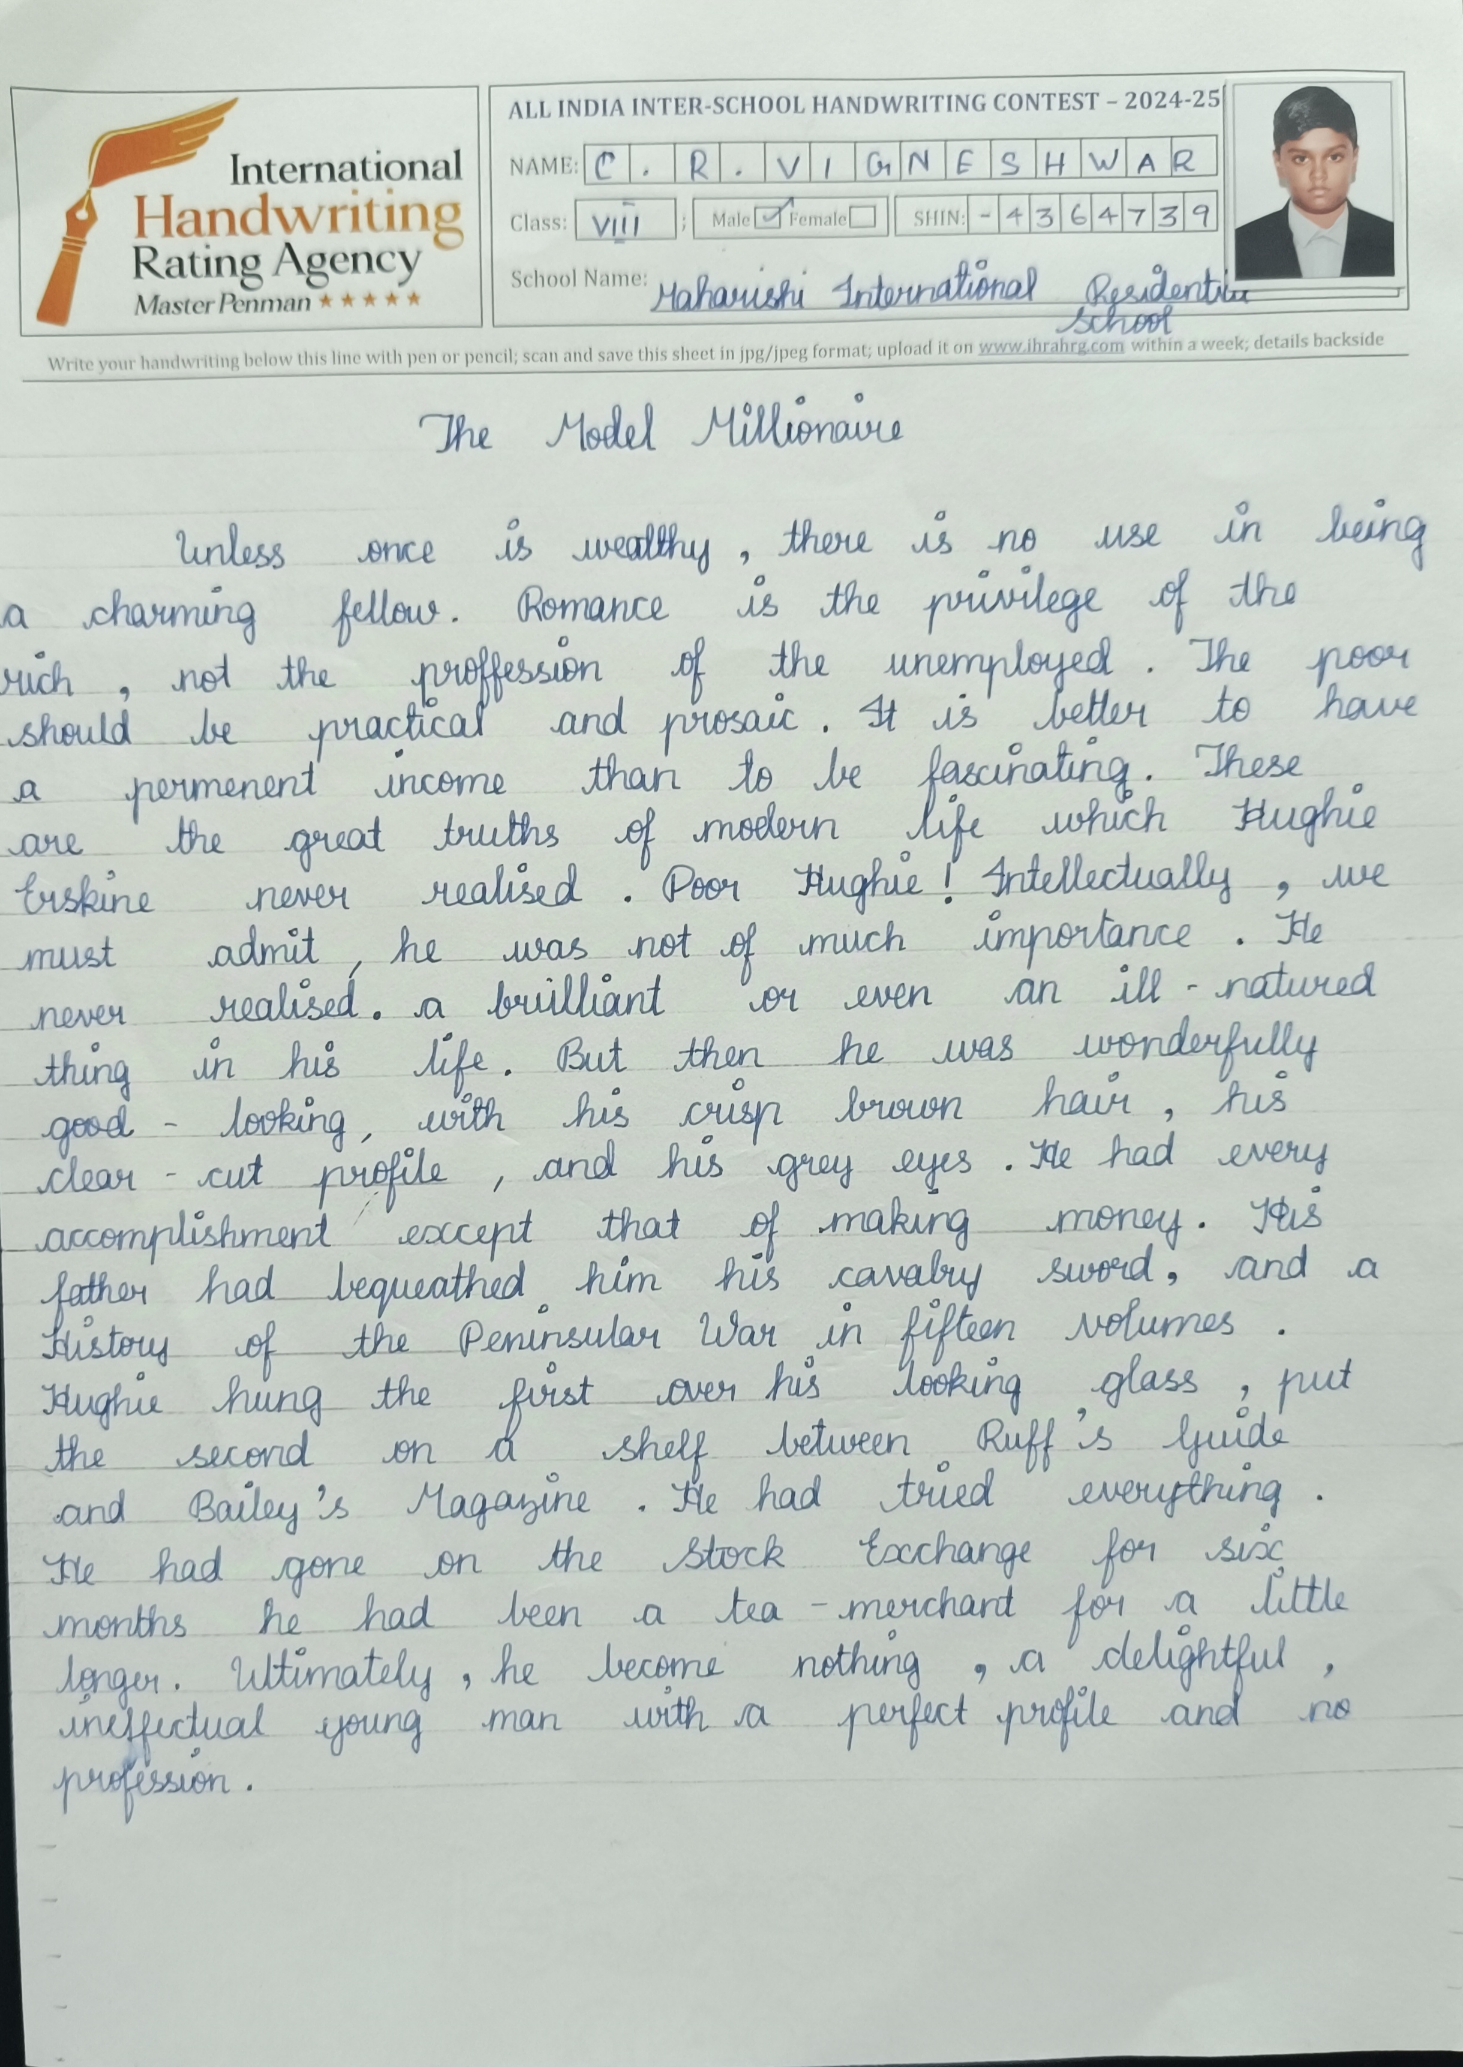 ALL INDIA INTER-SCHOOL HANDWRITING CONTEST – 2024-25
International
Handwriting
Rating Agency
Master Penman ★★★★★
NAME: C . R . V I G N E S H W A R
Class: VIII ; Male ✓ Female SHIN: - 4 3 6 4 7 3 9
School Name: Maharishi International Residential
School
Write your handwriting below this line with pen or pencil; scan and save this sheet in jpg/jpeg format; upload it on www.ihrahrg.com within a week; details backside
The Model Millionaire
Unless once is wealthy , there is no use in being
a charming fellow. Romance is the privilege of the
rich , not the proffession of the unemployed . The poor
should be practical and prosaic . It is better to have
a permenent income than to be fascinating. These
are the great truths of modern life which Hughie
Erskine never realised . Poor Hughie! Intellectually , we
must admit, he was not of much importance . He
never realised. a brilliant or even an ill - natured
thing in his life. But then he was wonderfully
good - looking, with his crisp brown hair, his
clear - cut profile , and his grey eyes . He had every
accomplishment except that of making money. His
father had bequeathed him his cavalry sword, and a
History of the Peninsular War in fifteen volumes .
Hughie hung the first over his looking glass , put
the second on a shelf between Ruff's Guide
and Bailey's Magazine . He had tried everything .
He had gone on the Stock Exchange for six
months he had been a tea - merchant for a little
longer. Ultimately , he become nothing , a delightful ,
ineffectual young man with a perfect profile and no
profession .